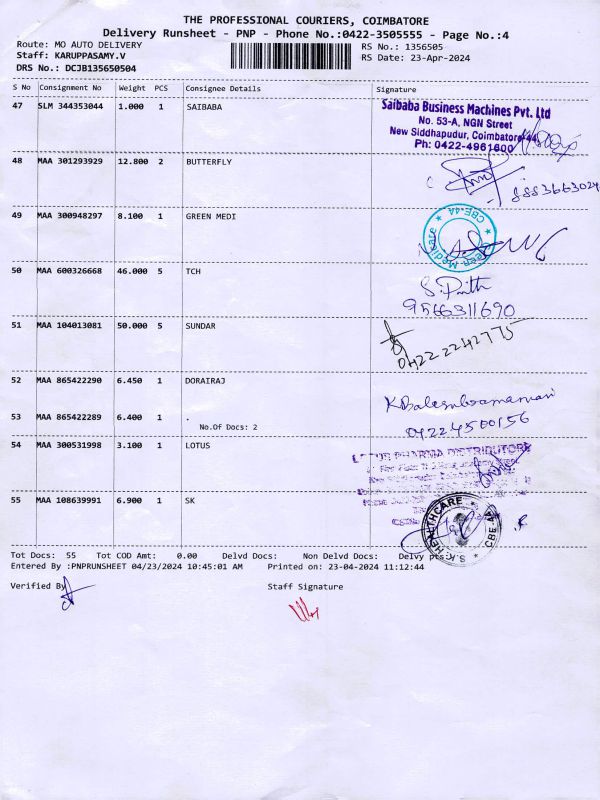 THE PROFESSIONAL COURIERS, COIMBATORE
Delivery Runsheet - PNP - Phone No.:0422-3505555 - Page No.:4
Route: MO AUTO DELIVERY RS No.: 1356505
Staff: KARUPPASAMY.V RS Date: 23-Apr-2024
DRS No.: DCJB135650504
S No Consignment No Weight PCS Consignee Details Signature
47 SLM 344353044 1.000 1 SAIBABA
Saibaba Business Machines Pvt. Ltd
No. 53-A, NGN Street
New Siddhapudur, Coimbatore-44
Ph: 0422-4961600
48 MAA 301293929 12.800 2 BUTTERFLY
8883663024
49 MAA 300948297 8.100 1 GREEN MEDI
Green Medicare ★ CBE-44 ★
50 MAA 600326668 46.000 5 TCH
9566311690
51 MAA 104013081 50.000 5 SUNDAR
0422 2242775
52 MAA 865422290 6.450 1 DORAIRAJ
K Balasubramaniam
53 MAA 865422289 6.400 1 .
04224500156
No.Of Docs: 2
54 MAA 300531998 3.100 1 LOTUS
LOTUS PHARMA DISTRIBUTORS
55 MAA 108639991 6.900 1 SK
S.K. HEALTHCARE ★ CBE-44 ★
Tot Docs: 55 Tot COD Amt: 0.00 Delvd Docs: Non Delvd Docs: Delvy pts:
Entered By :PNPRUNSHEET 04/23/2024 10:45:01 AM Printed on: 23-04-2024 11:12:44
Verified By Staff Signature